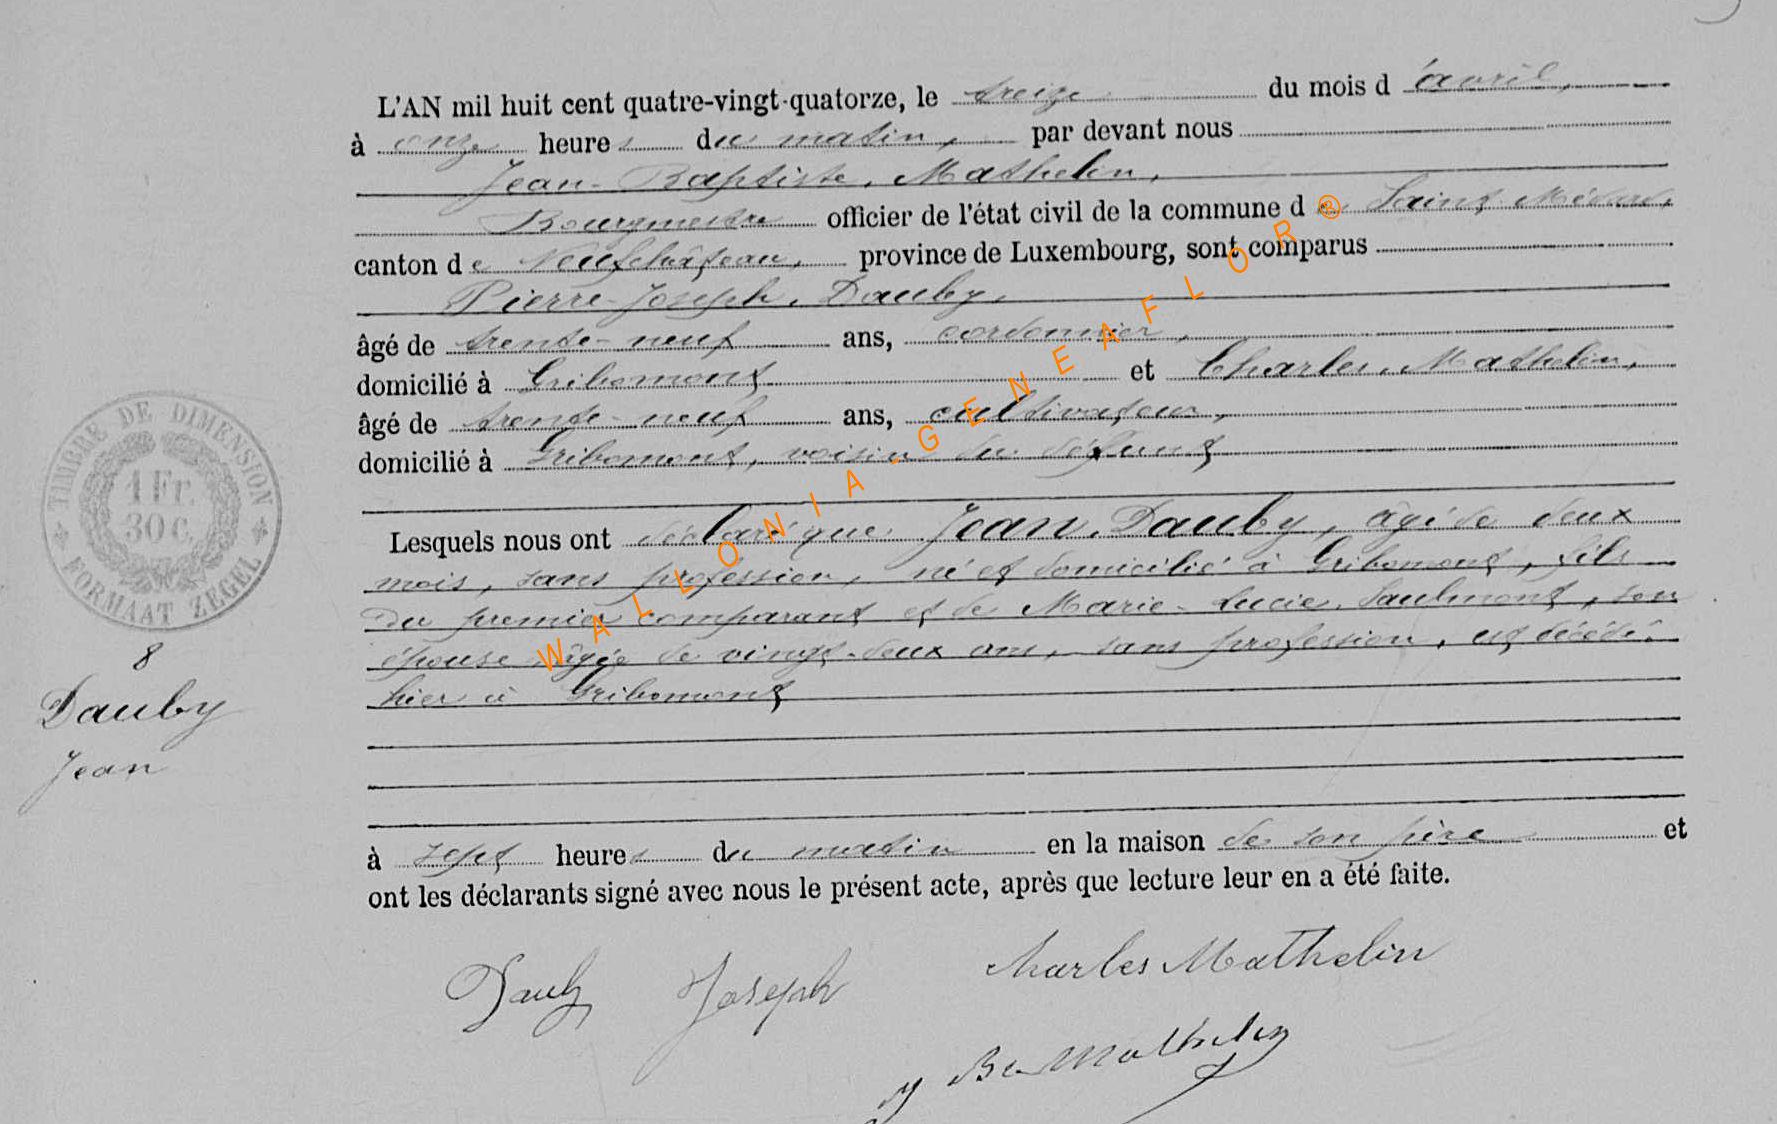 L'AN mil huit cent quatre-vingt-quatorze, le treize du mois d'avril,
à onze heures du matin, par devant nous
Jean-Baptiste, Mathelin,
Bourgmestre officier de l'état civil de la commune de Saint-Médard,
canton de Neufchâteau, province de Luxembourg, sont comparus
Pierre-Joseph, Dauby,
âgé de trente-neuf ans, cordonnier,
domicilié à Gribomont et Charles, Mathelin,
âgé de trente-neuf ans, cultivateur,
domicilié à Gribomont, voisin du défunt
Lesquels nous ont déclaré que Jean, Dauby, âgé de deux
mois, sans profession, né et domicilié à Gribomont, fils
du premier comparant et de Marie-Lucie, Saulmont, son
épouse âgée de vingt-deux ans, sans profession, est décédé
hier à Gribomont
à sept heures du matin en la maison de son père et
ont les déclarants signé avec nous le présent acte, après que lecture leur en a été faite.
TIMBRE DE DIMENSION
1 Fr.
30 C.
FORMAAT ZEGEL
8
Dauby
Jean
Dauby Joseph Charles Mathelin
J Bte Mathelin
WALLONIA-GENEAFLOR®